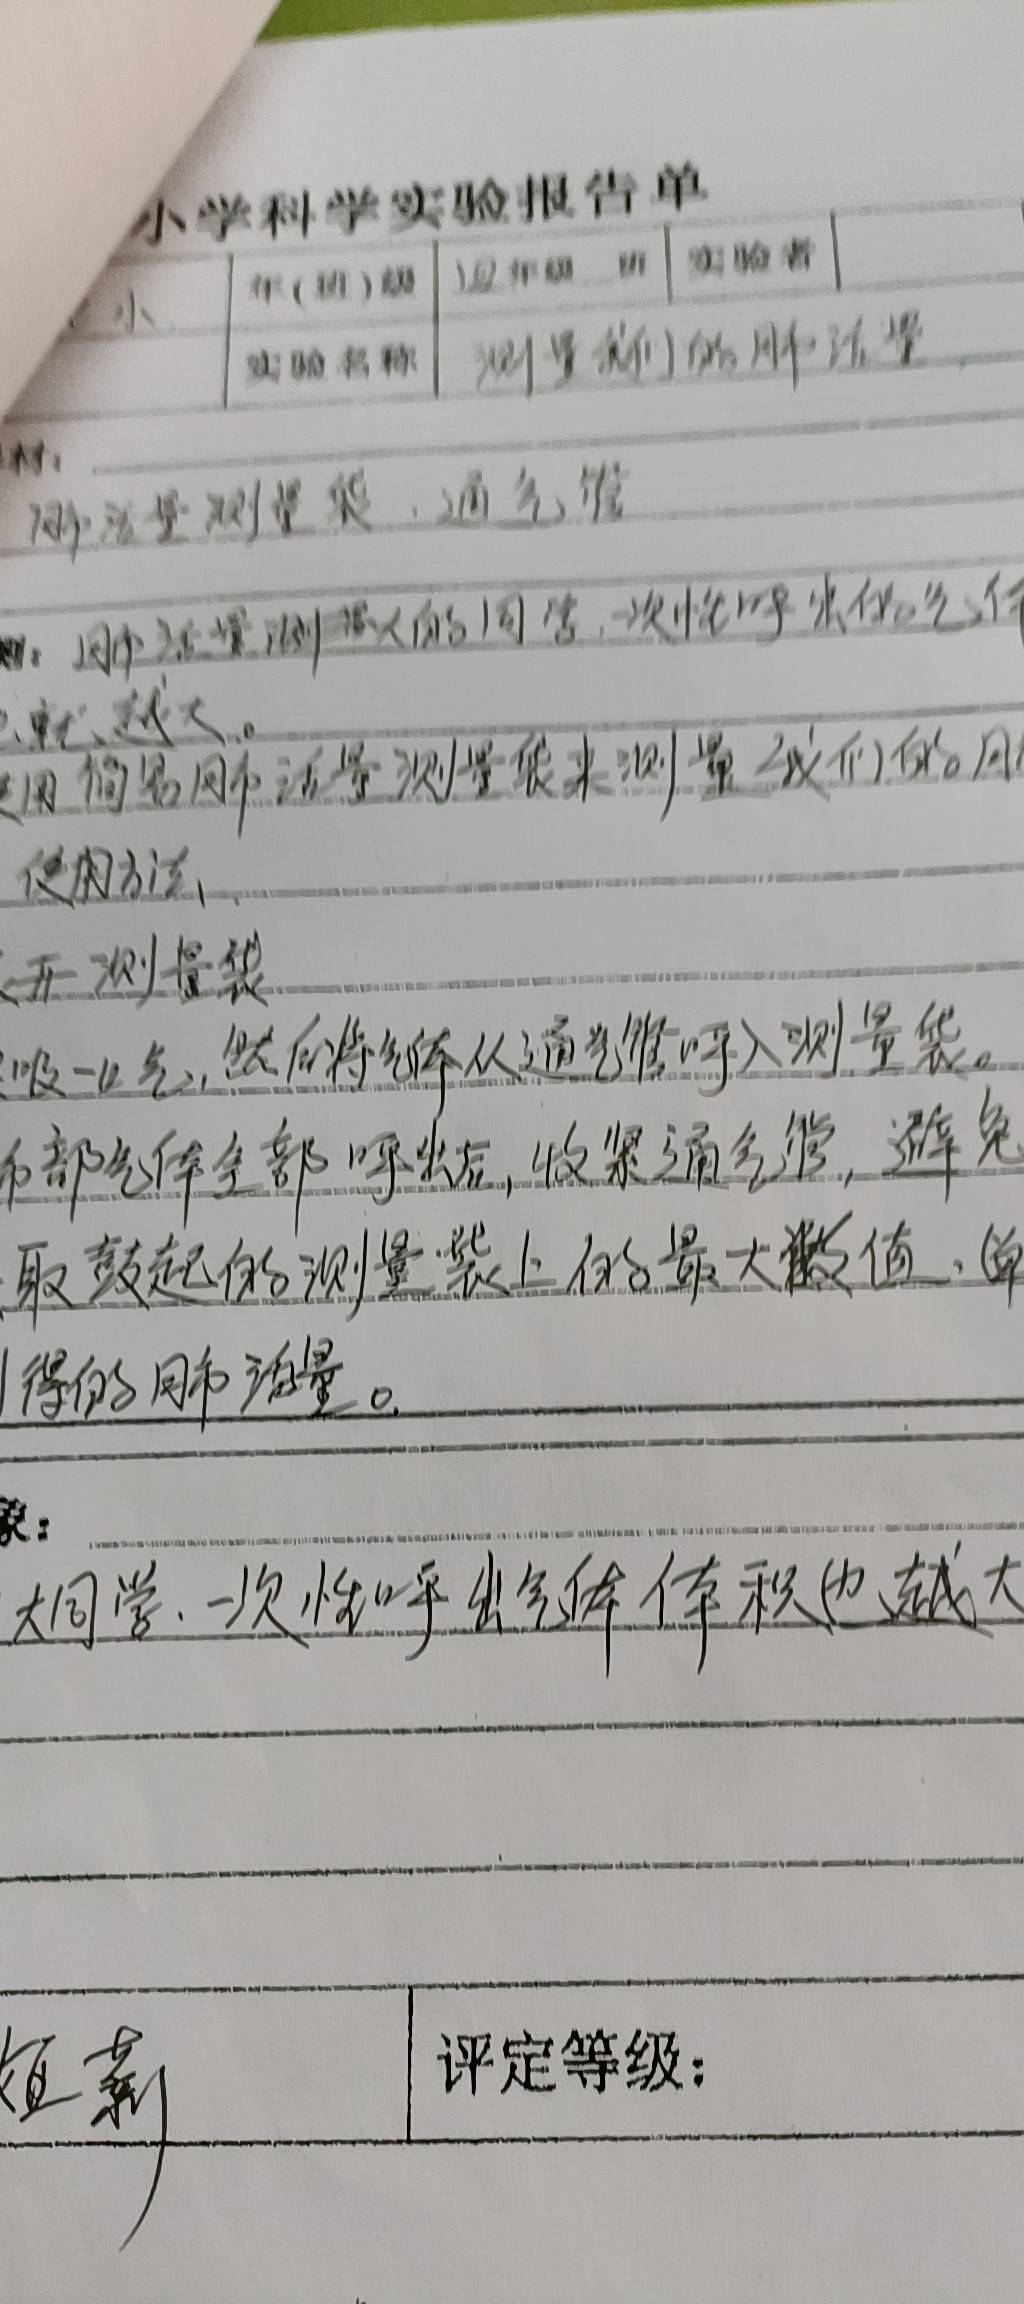 小学科学实验报告单
小 年(班)级 四年级 班 实验者
实验名称 测量我们的肺活量
材:
肺活量测量袋、通气管
肺活量测 大的同学,一次性呼出的气体
就越大。
用简易肺活量测量袋来测量我们的肺
使用方法,
开测量袋
吸一口气,然后将气体从通气管呼入测量袋。
部气体全部呼出后,收紧通气管,避免
取鼓起的测量袋上的最大数值,单
得的肺活量。
象:
大同学、一次性呼出气体体积也越大
评定等级: